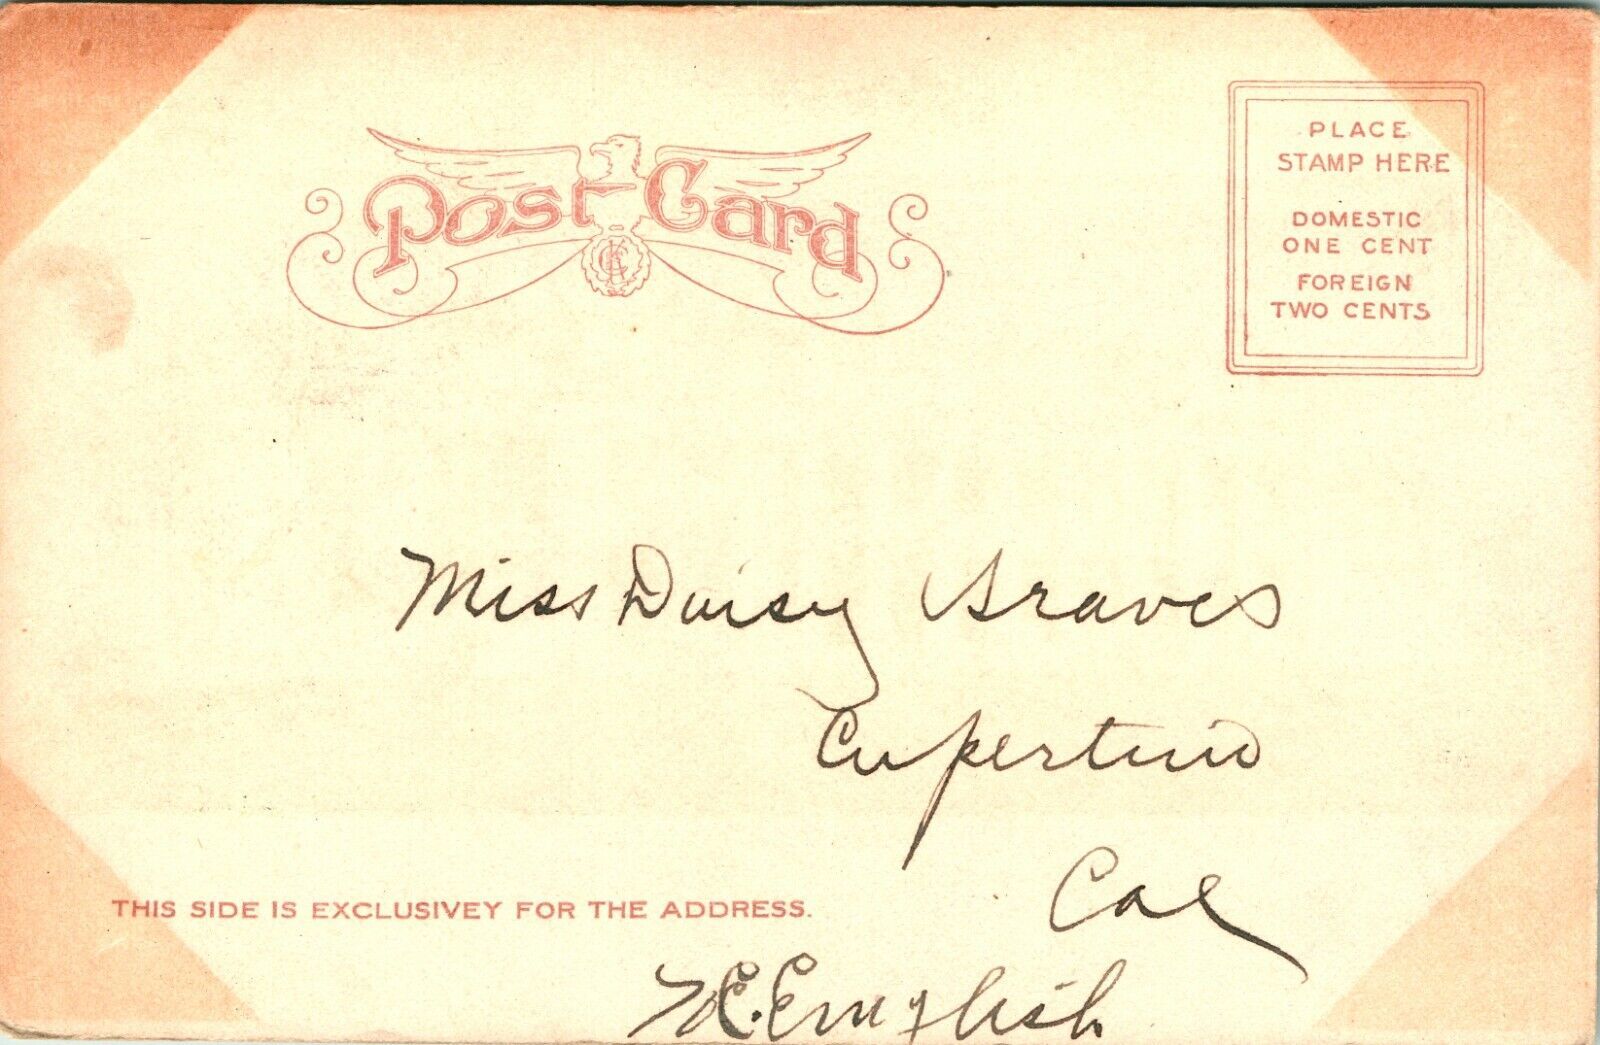 Post Card
PLACE
STAMP HERE
DOMESTIC
ONE CENT
FOREIGN
TWO CENTS
Miss Daisy Graves
Cupertino
Cal
THIS SIDE IS EXCLUSIVEY FOR THE ADDRESS.
E. English